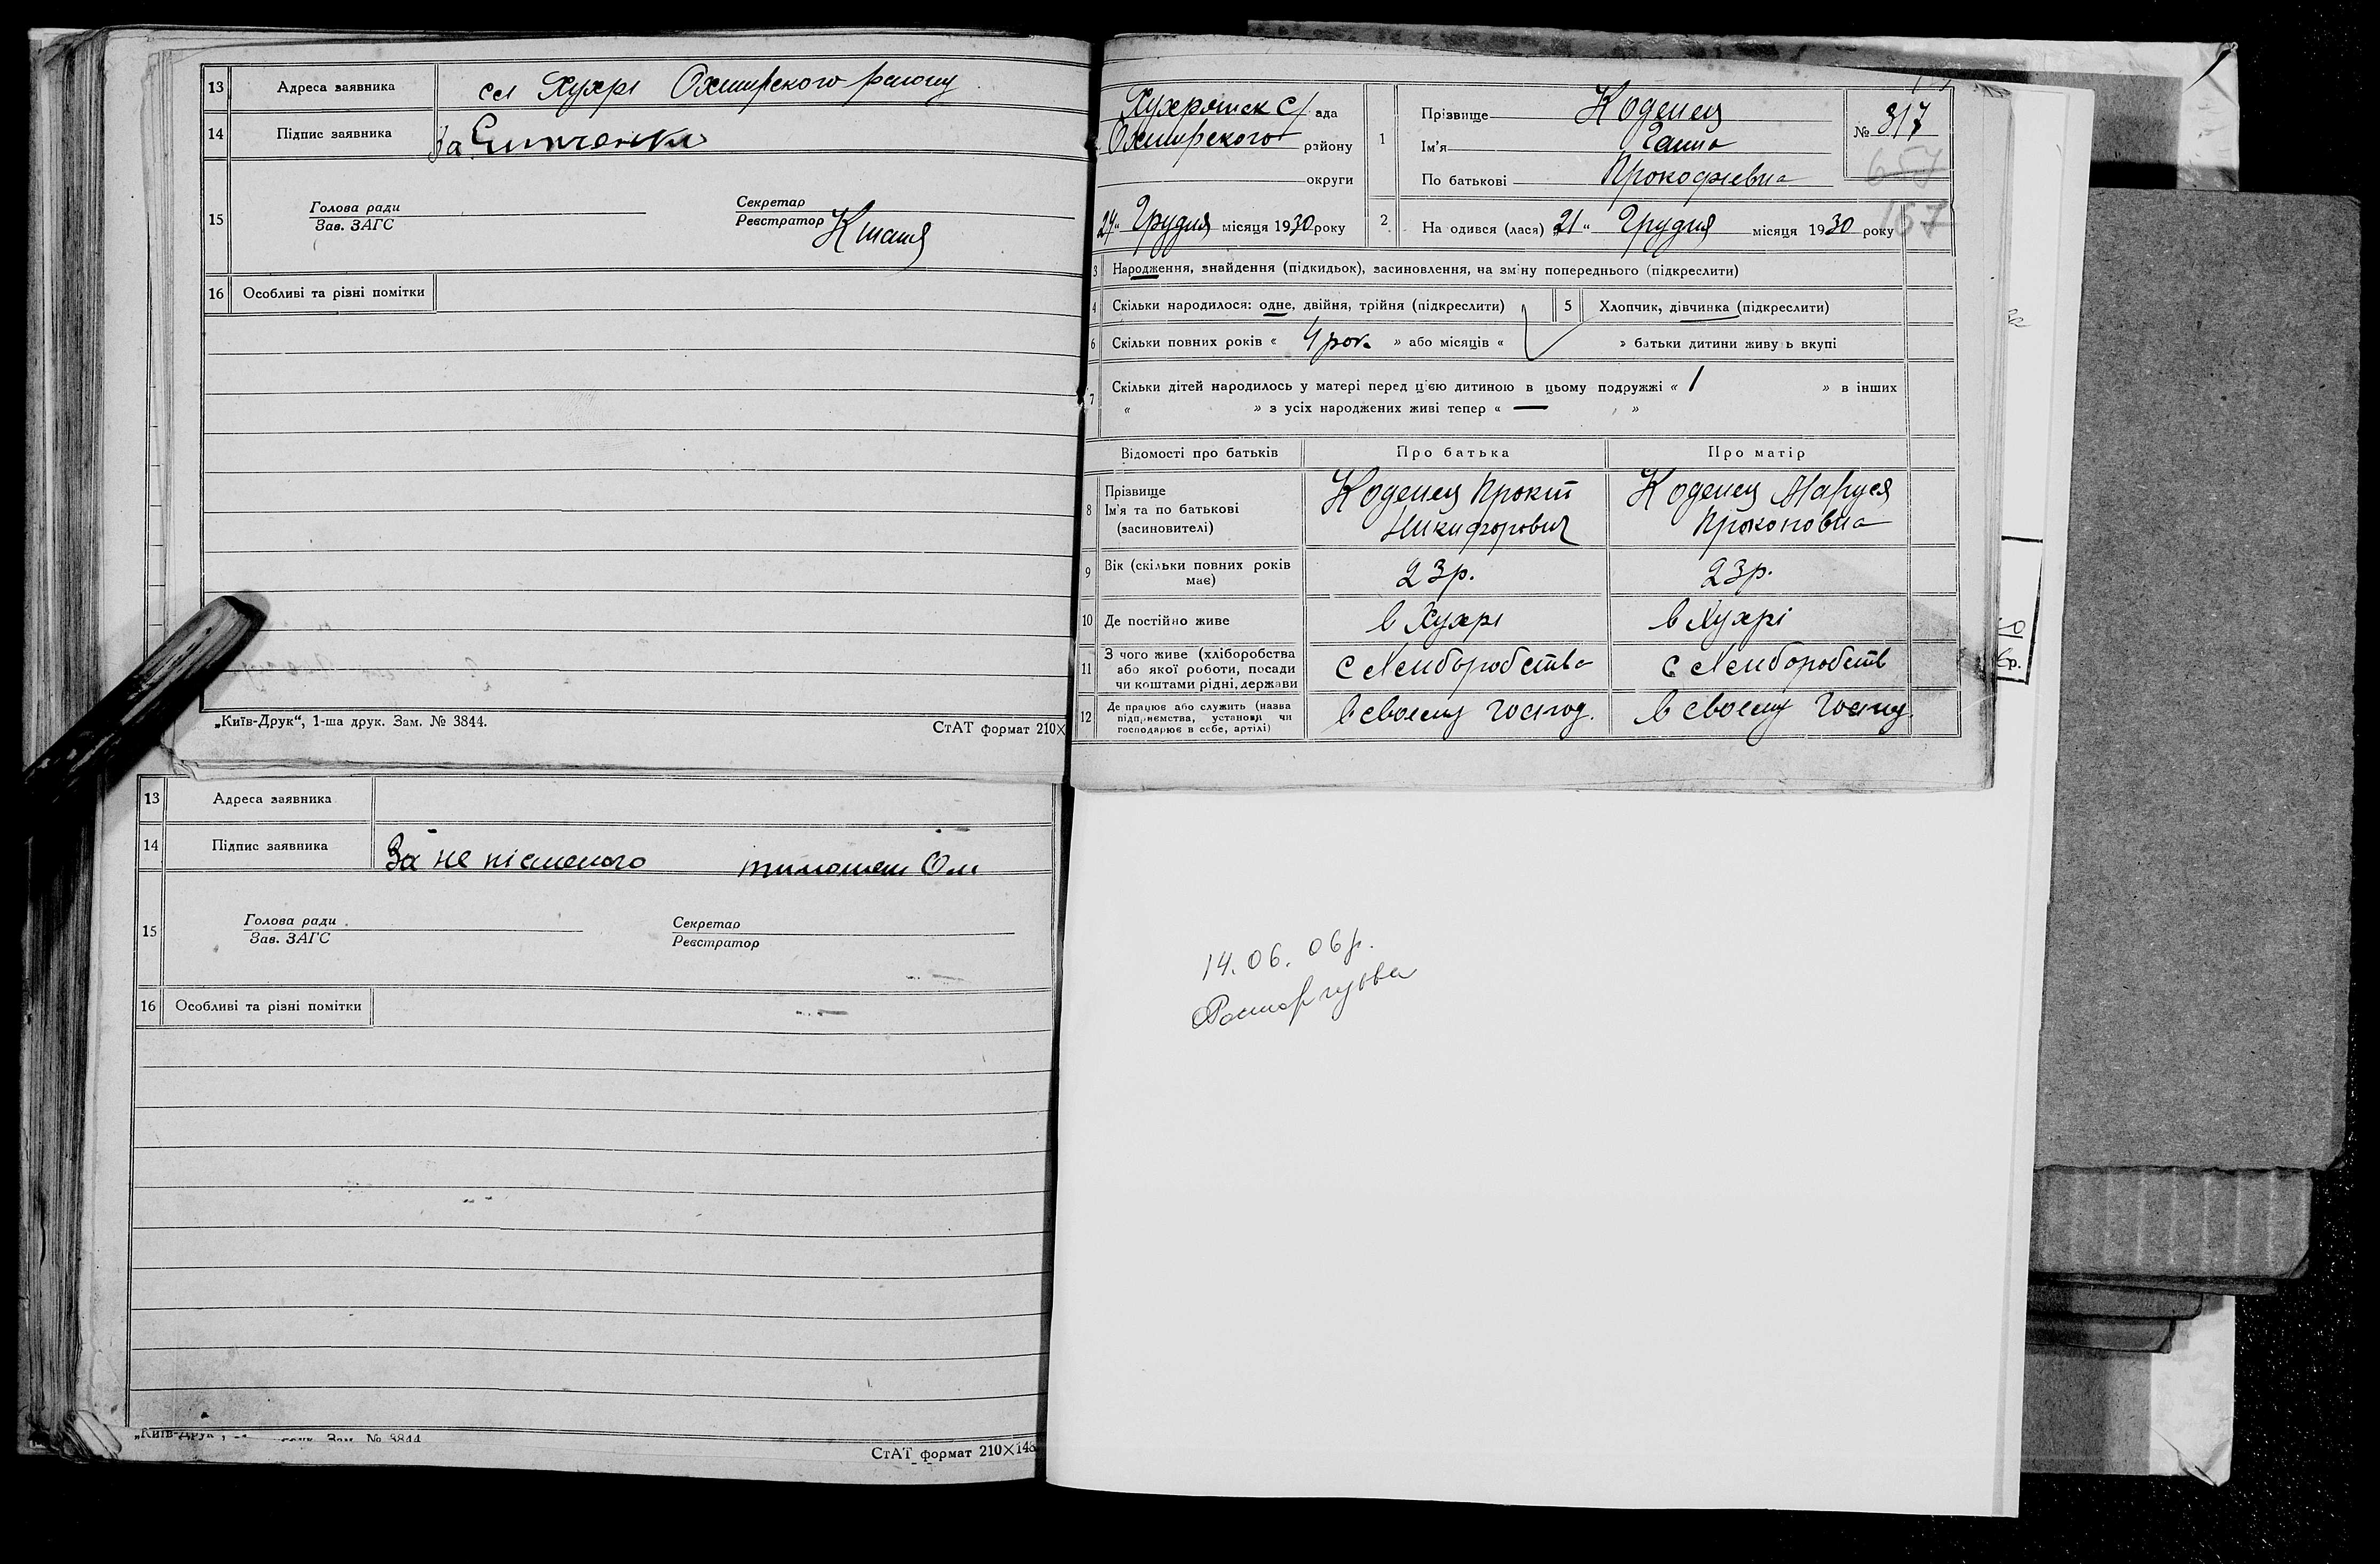 13 Адреса заявника сел Хухрі Охтирского району
14 Підпис заявника За
15 Голова ради
Зав. ЗАГС
Секретар
Реєстратор
16 Особливі та різні помітки
„Київ-Друк“, 1-ша друк. Зам. № 3844.
СтАТ формат 210×
13 Адреса заявника
14 Підпис заявника За не пісменого
15 Голова ради
Зав. ЗАГС
Секретар
Реєстратор
16 Особливі та різні помітки
„Київ-Друк“, Зам. № 3844
СтАТ формат 210×148
Хухрянск с/ ада
Охтирского району
округи
24 „ Грудня місяця 1930 року
1 Прізвище Коденец
Ім'я Ганна
По батькові Прокофіевна
№ 317
657
157
2 На одився (лася) „21 “ Грудня місяця 1930 року
3 Народження, знайдення (підкидьок), засиновлення, на зміну попереднього (підкреслити)
4 Скільки народилося: одне, двійня, трійня (підкреслити) 5 Хлопчик, дівчинка (підкреслити)
6 Скільки повних років « 4 рок. » або місяців « » батьки дитини живу ь вкупі
7 Скільки дітей народилось у матері перед цією дитиною в цьому подружжі « 1 » в інших
« » з усіх народжених живі тепер « — »
Відомості про батьків Про батька Про матір
8 Прізвище
Ім'я та по батькові
(засиновителі)
Коденец Прокіп
Никифорович
Коденец Маруся
Прокоповна
9 Вік (скільки повних років
має)
23р. 23р.
10 Де постійно живе в Хухрі в Хухрі
11 З чого живе (хліборобства
або якої роботи, посади
чи коштами рідні, держави
с хлеборобства с хлеборобств
12 Де працює або служить (назва
підприємства, установи чи
господарює в себе, артілі)
в своему господ. в своему господ.
14.06.06р.